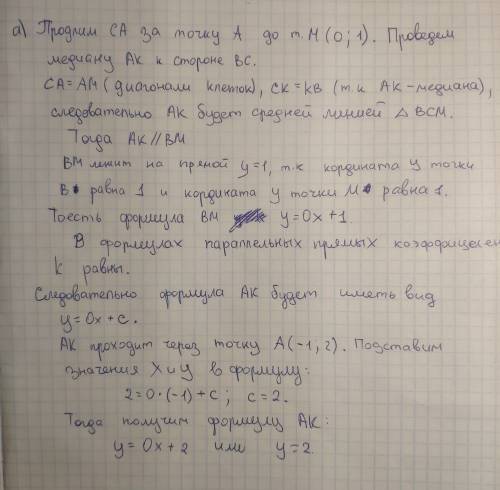 а) Продлим CA за точку A до т. M (0; 1). Проведем
медиану AK к стороне BC.
CA = AM (диагонали клеток), CK = KB (т.к AK - медиана),
следовательно AK будет средней линией △ BCM.
Тогда AK // BM
BM лежит на прямой y=1, т.к кордината y точки
B равна 1 и кордината y точки M равна 1.
Тоесть формула BM y = 0x + 1.
В формулах параллельных прямых коэффициен
k равны.
Следовательно формула AK будет иметь вид
y = 0x + c.
AK проходит через точку A (-1, 2). Подставим
значения X и y в формулу:
2 = 0 · (-1) + c ; c = 2.
Тогда получим формулу AK:
y = 0x + 2 или y = 2.